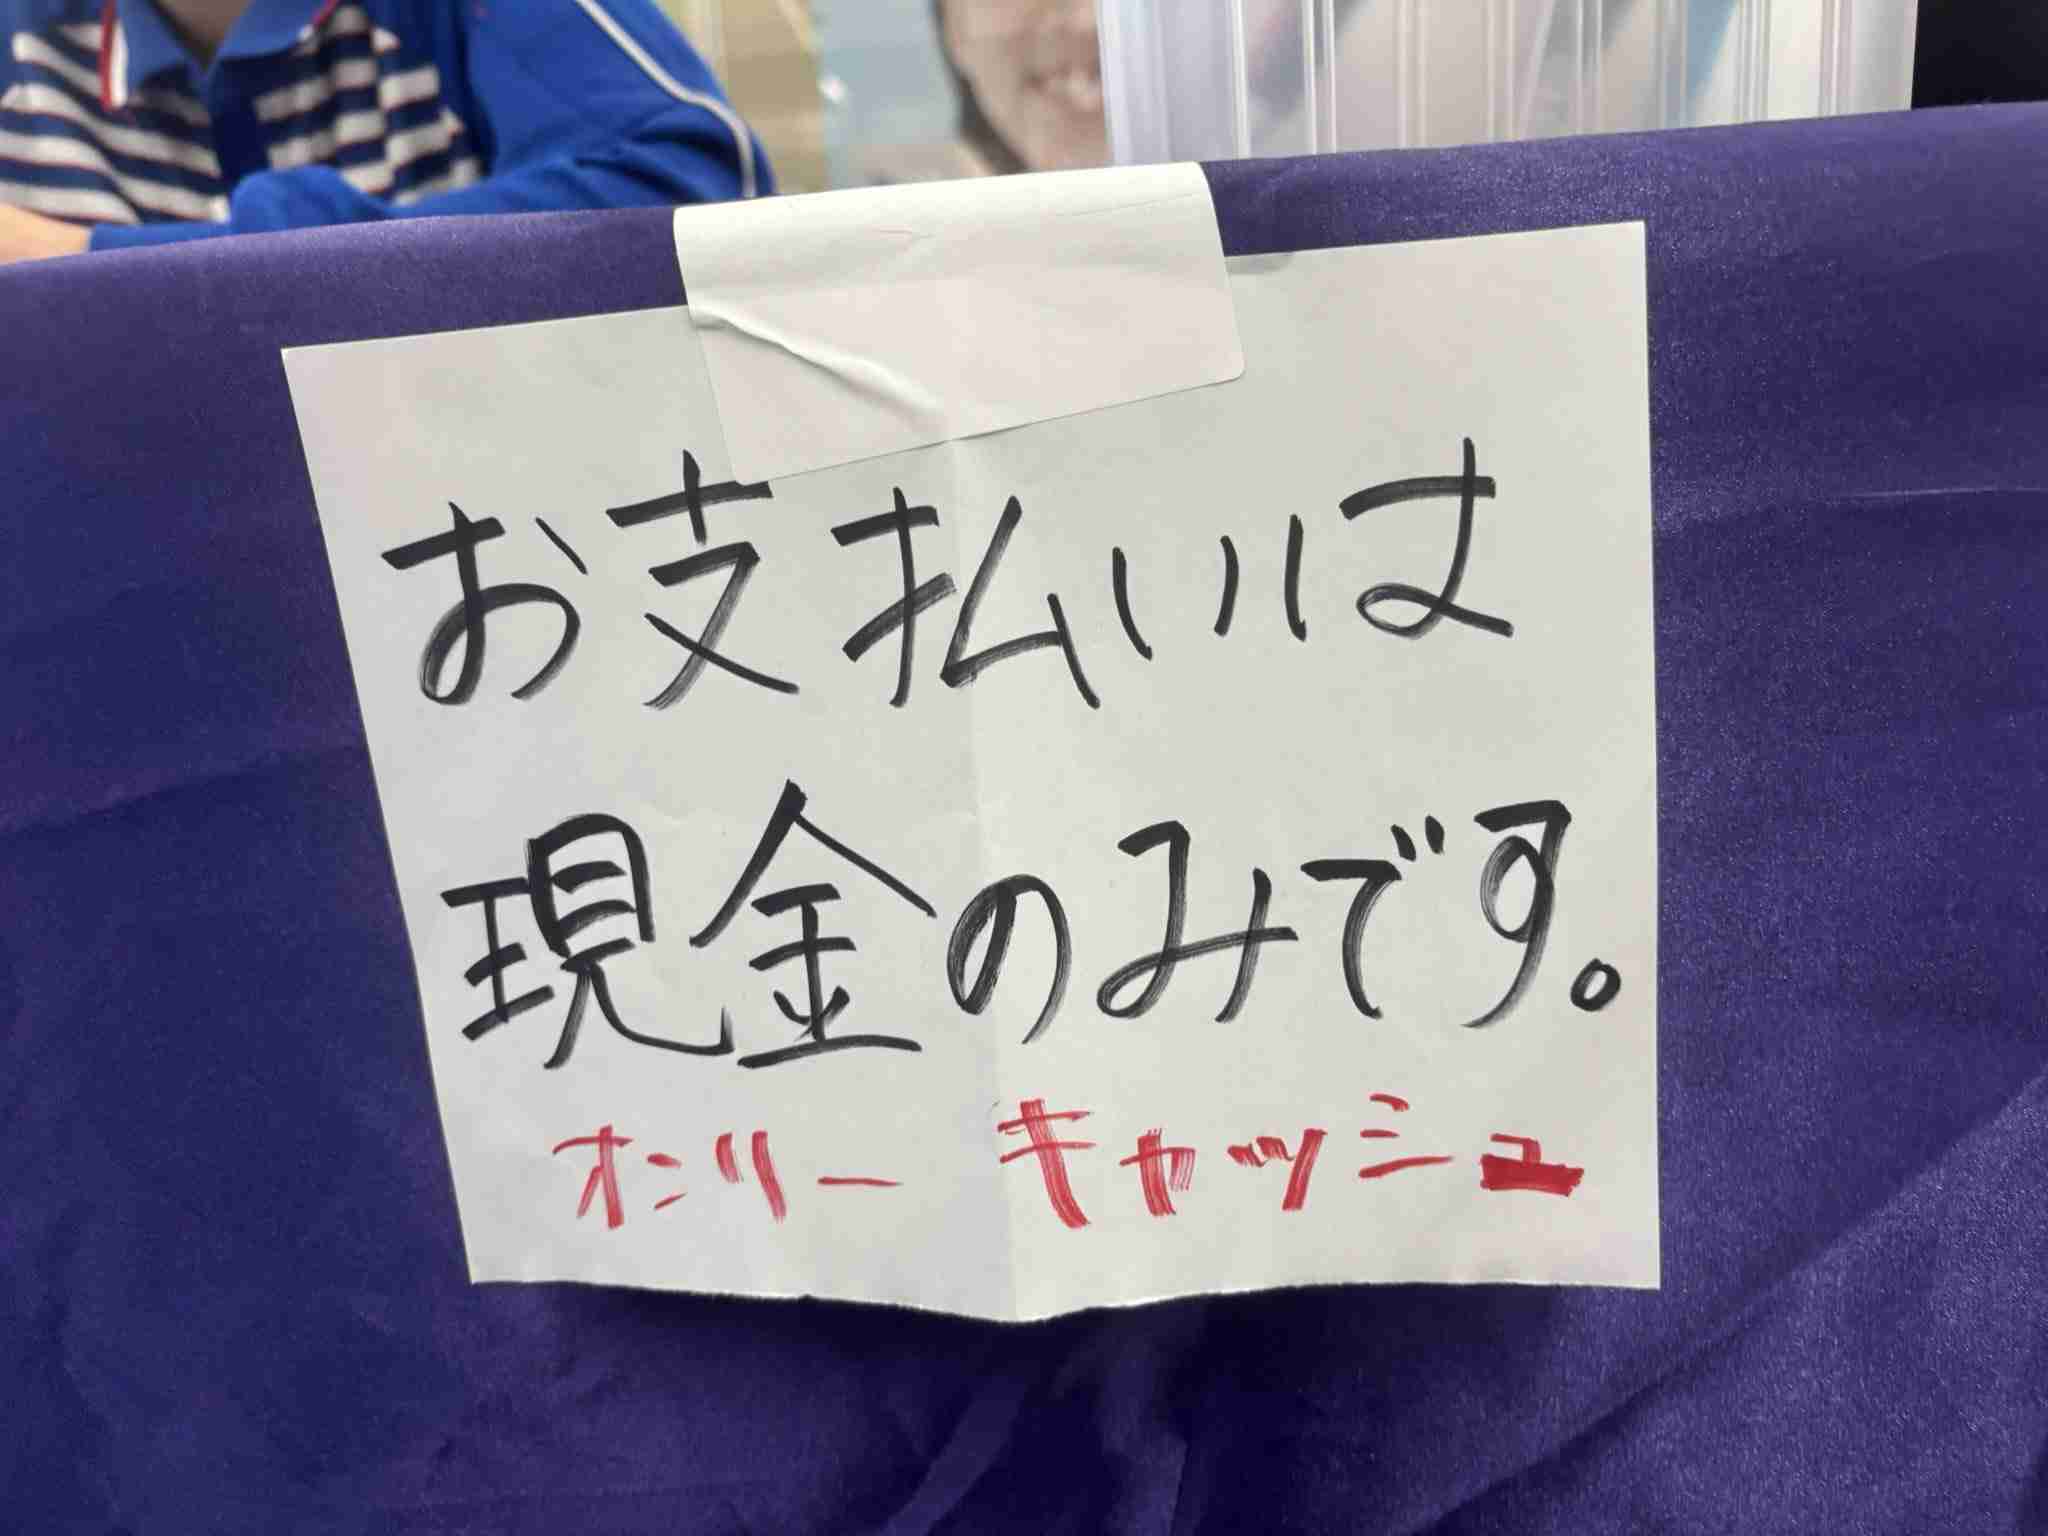 お支払いは
現金のみです。
オンリー キャッシュ